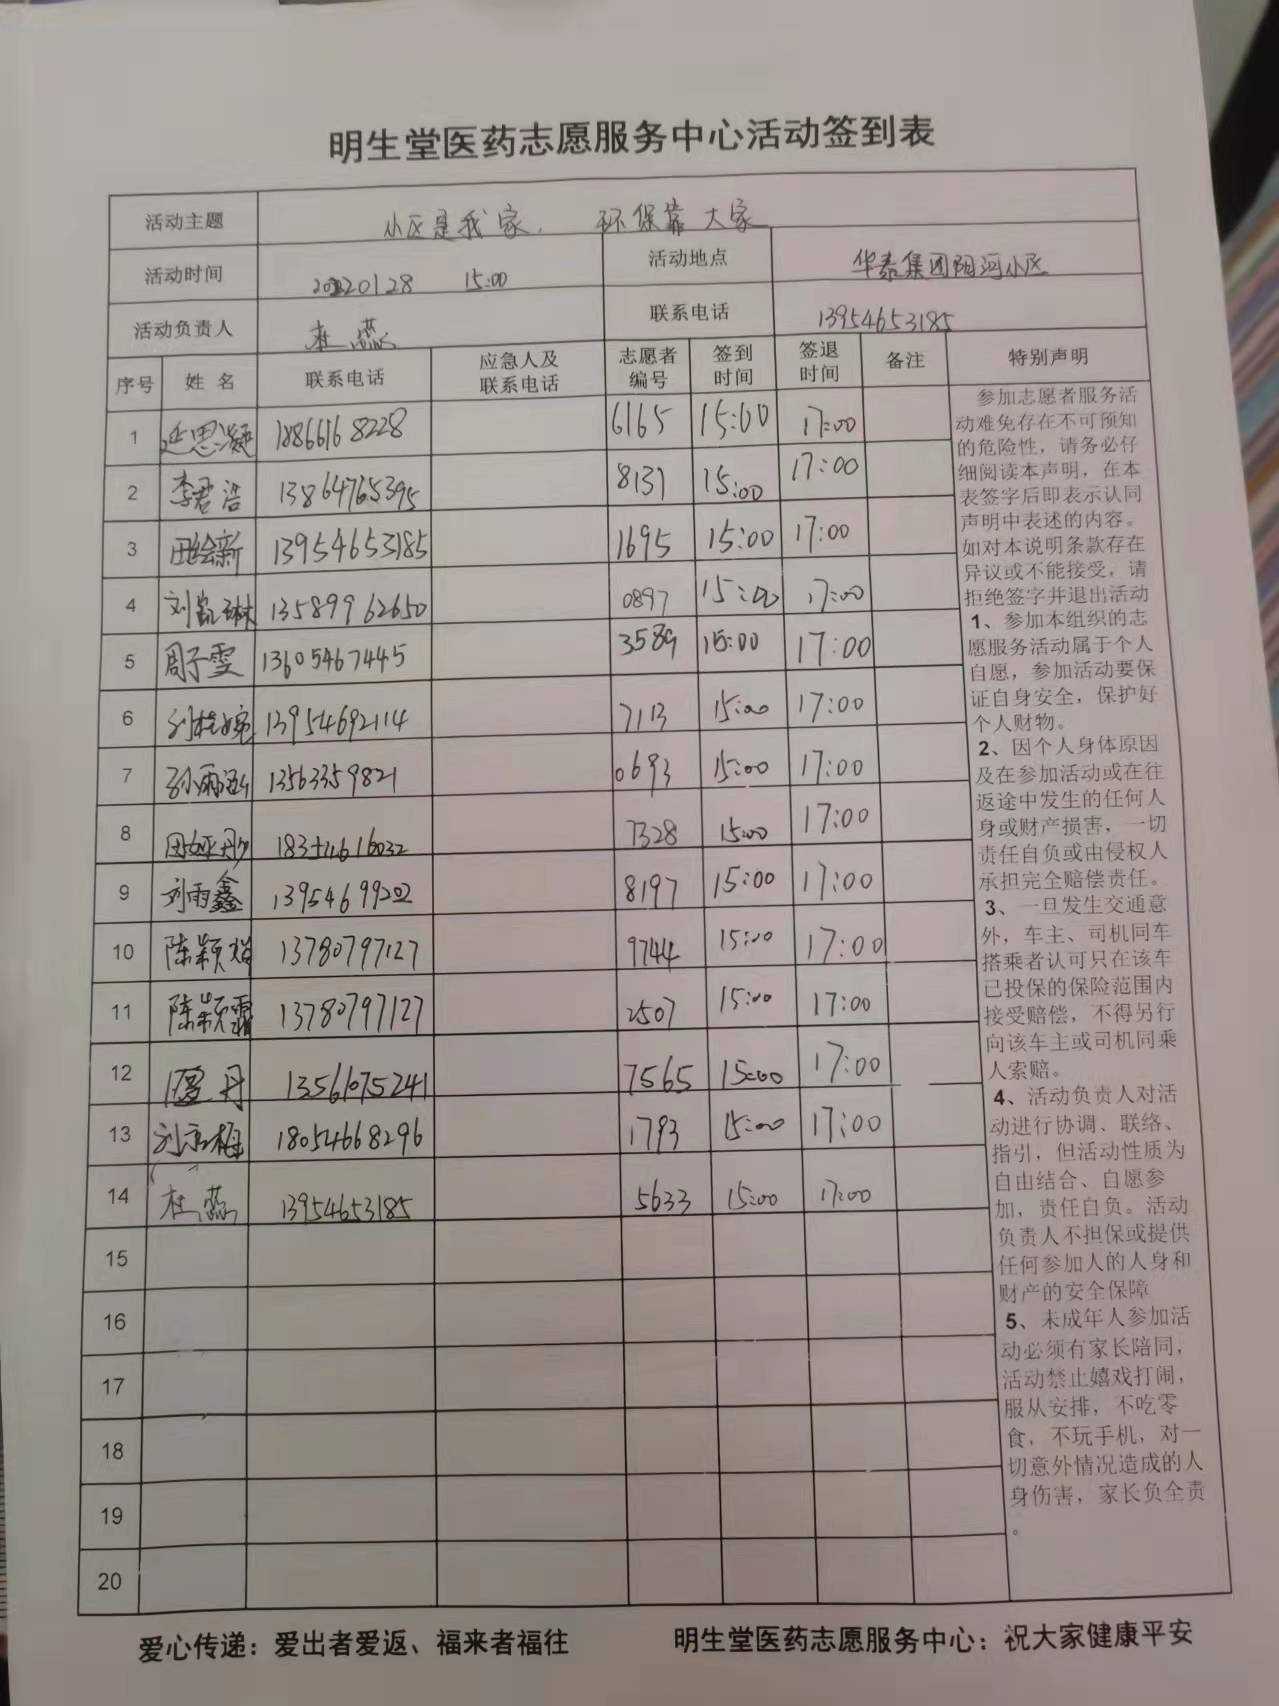 明生堂医药志愿服务中心活动签到表
活动主题 小区是我家. 环保靠大家
活动时间 20220128 15:00 活动地点 华泰集团阳河小区
活动负责人 杜蕊 联系电话 13954653185
序号 姓名 联系电话 应急人及联系电话 志愿者编号 签到时间 签退时间 备注 特别声明
1 延思凝 18866168228 6165 15:00 17:00
2 李君浩 13864765395 8137 15:00 17:00
3 田绘新 13954653185 1695 15:00 17:00
4 刘凯琳 13589962650 0897 15:00 17:00
5 周子雯 13605467445 3589 15:00 17:00
6 刘桂婉 13954692114 7113 15:00 17:00
7 孙雨 13563359821 0693 15:00 17:00
8 田 7328 15:00 17:00
9 刘雨鑫 13954699202 8197 15:00 17:00
10 陈颖 13780797127 9744 15:00 17:00
11 陈颖霜 13780797127 2507 15:00 17:00
12 丹 13561075241 7565 15:00 17:00
13 刘 梅 18054668296 1793 15:00 17:00
14 杜蕊 13954653185 5633 15:00 17:00
15
16
17
18
19
20
参加志愿者服务活
动难免存在不可预知
的危险性，请务必仔
细阅读本声明，在本
表签字后即表示认同
声明中表述的内容。
如对本说明条款存在
异议或不能接受，请
拒绝签字并退出活动
1、参加本组织的志
愿服务活动属于个人
自愿，参加活动要保
证自身安全，保护好
个人财物。
2、因个人身体原因
及在参加活动或在往
返途中发生的任何人
身或财产损害，一切
责任自负或由侵权人
承担完全赔偿责任。
3、一旦发生交通意
外，车主、司机同车
搭乘者认可只在该车
已投保的保险范围内
接受赔偿，不得另行
向该车主或司机同乘
人索赔。
4、活动负责人对活
动进行协调、联络、
指引，但活动性质为
自由结合、自愿参
加，责任自负。活动
负责人不担保或提供
任何参加人的人身和
财产的安全保障
5、未成年人参加活
动必须有家长陪同，
活动禁止嬉戏打闹，
服从安排，不吃零
食，不玩手机，对一
切意外情况造成的人
身伤害，家长负全责
。
爱心传递：爱出者爱返、福来者福往 明生堂医药志愿服务中心：祝大家健康平安